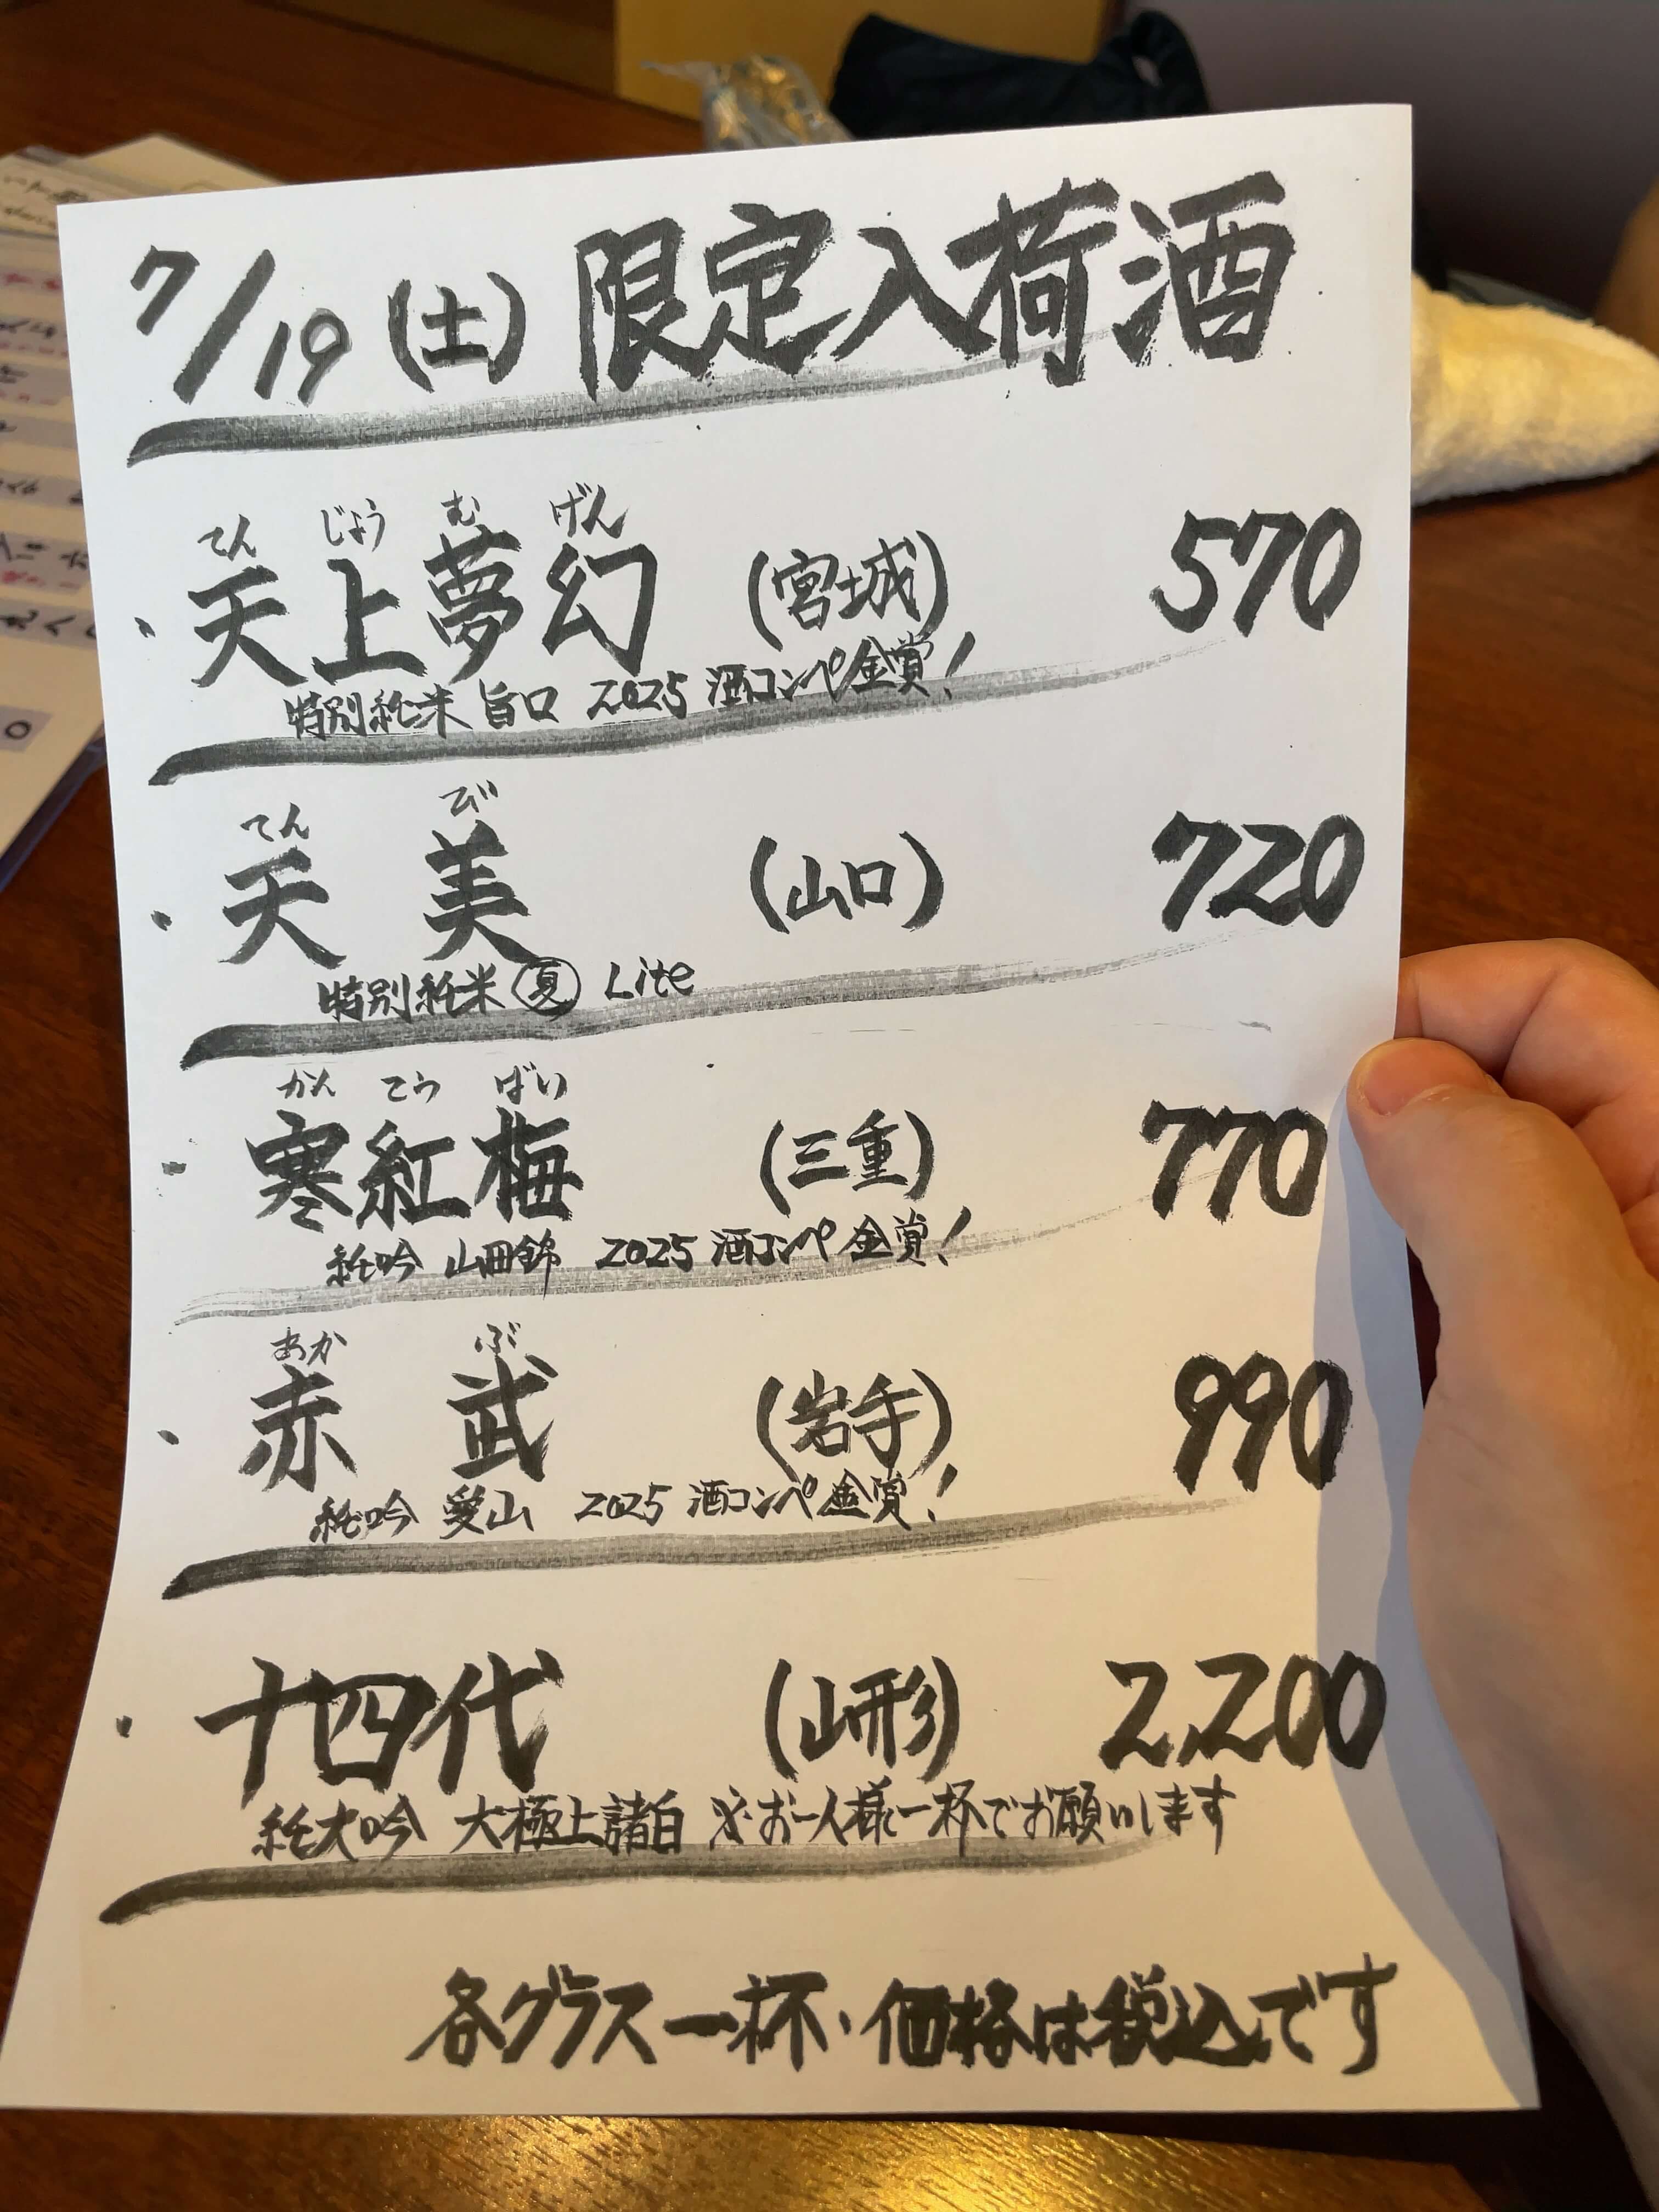 7/19(土) 限定入荷酒
てん じょう む げん
・天上夢幻 (宮城) 570
特別純米 旨口 2025 酒コンペ金賞!
てん び
・天美 (山口) 720
特別純米 夏 Lite
かん こう ばい
・寒紅梅 (三重) 770
純吟 山田錦 2025 酒コンペ 金賞!
あか ぶ
・赤武 (岩手) 990
純吟 愛山 2025 酒コンペ金賞!
・十四代 (山形) 2,200
純大吟 大極上諸白 ※お一人様一杯でお願いします
各グラス一杯、価格は税込です